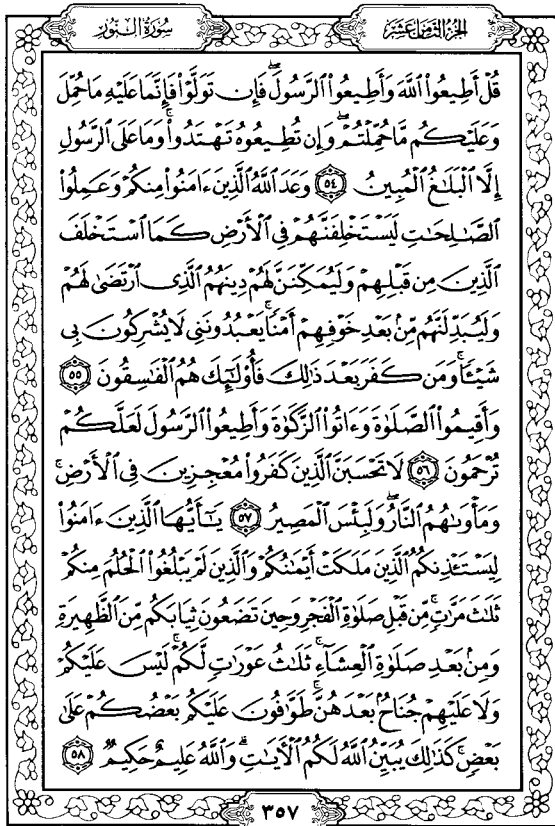 الجزء الثامن عشر
سورة النور
قُلْ أَطِيعُوا۟ ٱللَّهَ وَأَطِيعُوا۟ ٱلرَّسُولَ ۖ فَإِن تَوَلَّوْا۟ فَإِنَّمَا عَلَيْهِ مَا حُمِّلَ
وَعَلَيْكُم مَّا حُمِّلْتُمْ ۖ وَإِن تُطِيعُوهُ تَهْتَدُوا۟ ۚ وَمَا عَلَى ٱلرَّسُولِ
إِلَّا ٱلْبَلَٰغُ ٱلْمُبِينُ ٥٤ وَعَدَ ٱللَّهُ ٱلَّذِينَ ءَامَنُوا۟ مِنكُمْ وَعَمِلُوا۟
ٱلصَّٰلِحَٰتِ لَيَسْتَخْلِفَنَّهُمْ فِى ٱلْأَرْضِ كَمَا ٱسْتَخْلَفَ
ٱلَّذِينَ مِن قَبْلِهِمْ وَلَيُمَكِّنَنَّ لَهُمْ دِينَهُمُ ٱلَّذِى ٱرْتَضَىٰ لَهُمْ
وَلَيُبَدِّلَنَّهُم مِّنۢ بَعْدِ خَوْفِهِمْ أَمْنًا ۚ يَعْبُدُونَنِى لَا يُشْرِكُونَ بِى
شَيْـًٔا ۚ وَمَن كَفَرَ بَعْدَ ذَٰلِكَ فَأُو۟لَٰٓئِكَ هُمُ ٱلْفَٰسِقُونَ ٥٥
وَأَقِيمُوا۟ ٱلصَّلَوٰةَ وَءَاتُوا۟ ٱلزَّكَوٰةَ وَأَطِيعُوا۟ ٱلرَّسُولَ لَعَلَّكُمْ
تُرْحَمُونَ ٥٦ لَا تَحْسَبَنَّ ٱلَّذِينَ كَفَرُوا۟ مُعْجِزِينَ فِى ٱلْأَرْضِ ۚ
وَمَأْوَىٰهُمُ ٱلنَّارُ ۖ وَلَبِئْسَ ٱلْمَصِيرُ ٥٧ يَٰٓأَيُّهَا ٱلَّذِينَ ءَامَنُوا۟
لِيَسْتَـْٔذِنكُمُ ٱلَّذِينَ مَلَكَتْ أَيْمَٰنُكُمْ وَٱلَّذِينَ لَمْ يَبْلُغُوا۟ ٱلْحُلُمَ مِنكُمْ
ثَلَٰثَ مَرَّٰتٍ ۚ مِّن قَبْلِ صَلَوٰةِ ٱلْفَجْرِ وَحِينَ تَضَعُونَ ثِيَابَكُم مِّنَ ٱلظَّهِيرَةِ
وَمِنۢ بَعْدِ صَلَوٰةِ ٱلْعِشَآءِ ۚ ثَلَٰثُ عَوْرَٰتٍ لَّكُمْ ۚ لَيْسَ عَلَيْكُمْ
وَلَا عَلَيْهِمْ جُنَاحٌۢ بَعْدَهُنَّ ۚ طَوَّٰفُونَ عَلَيْكُم بَعْضُكُمْ عَلَىٰ
بَعْضٍ ۚ كَذَٰلِكَ يُبَيِّنُ ٱللَّهُ لَكُمُ ٱلْـَٔايَٰتِ ۗ وَٱللَّهُ عَلِيمٌ حَكِيمٌ ٥٨
٣٥٧